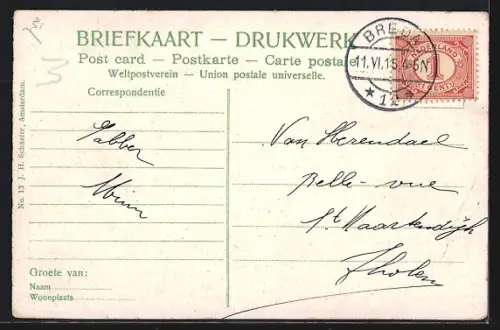 BRIEFKAART — DRUKWERK
Post card — Postkarte — Carte postale
Weltpostverein — Union postale universelle.
BREDA
11.VI.15 4-5N
NEDERLAND
1
CENT
Correspondentie
No. 13 J. H. Schaefer, Amsterdam.
Van Herendael
Belle-vue
St Maartendijk
Tholen
Groete van:
Naam
Woonplaats